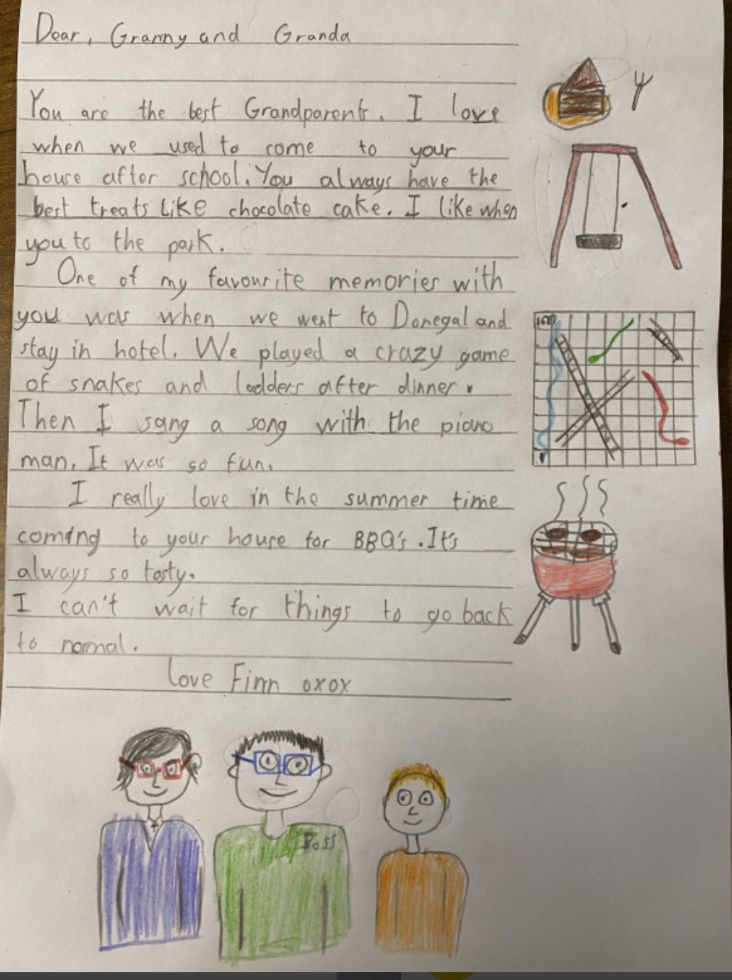 Dear, Granny and Granda
You are the best Grandparents. I love
when we used to come to your
house after school. You always have the
best treats like chocolate cake. I like when
you to the park.
One of my favourite memories with
you was when we went to Donegal and
stay in hotel. We played a crazy game
of snakes and ladders after dinner.
Then I sang a song with the piano
man. It was so fun.
I really love in the summer time
coming to your house for BBQ's. It's
always so tasty.
I can't wait for things to go back
to normal.
love Finn oxox
100
1
Boss